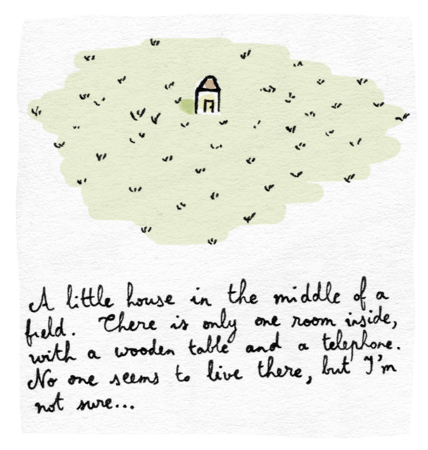 A little house in the middle of a
field. There is only one room inside,
with a wooden table and a telephone.
No one seems to live there, but I'm
not sure...